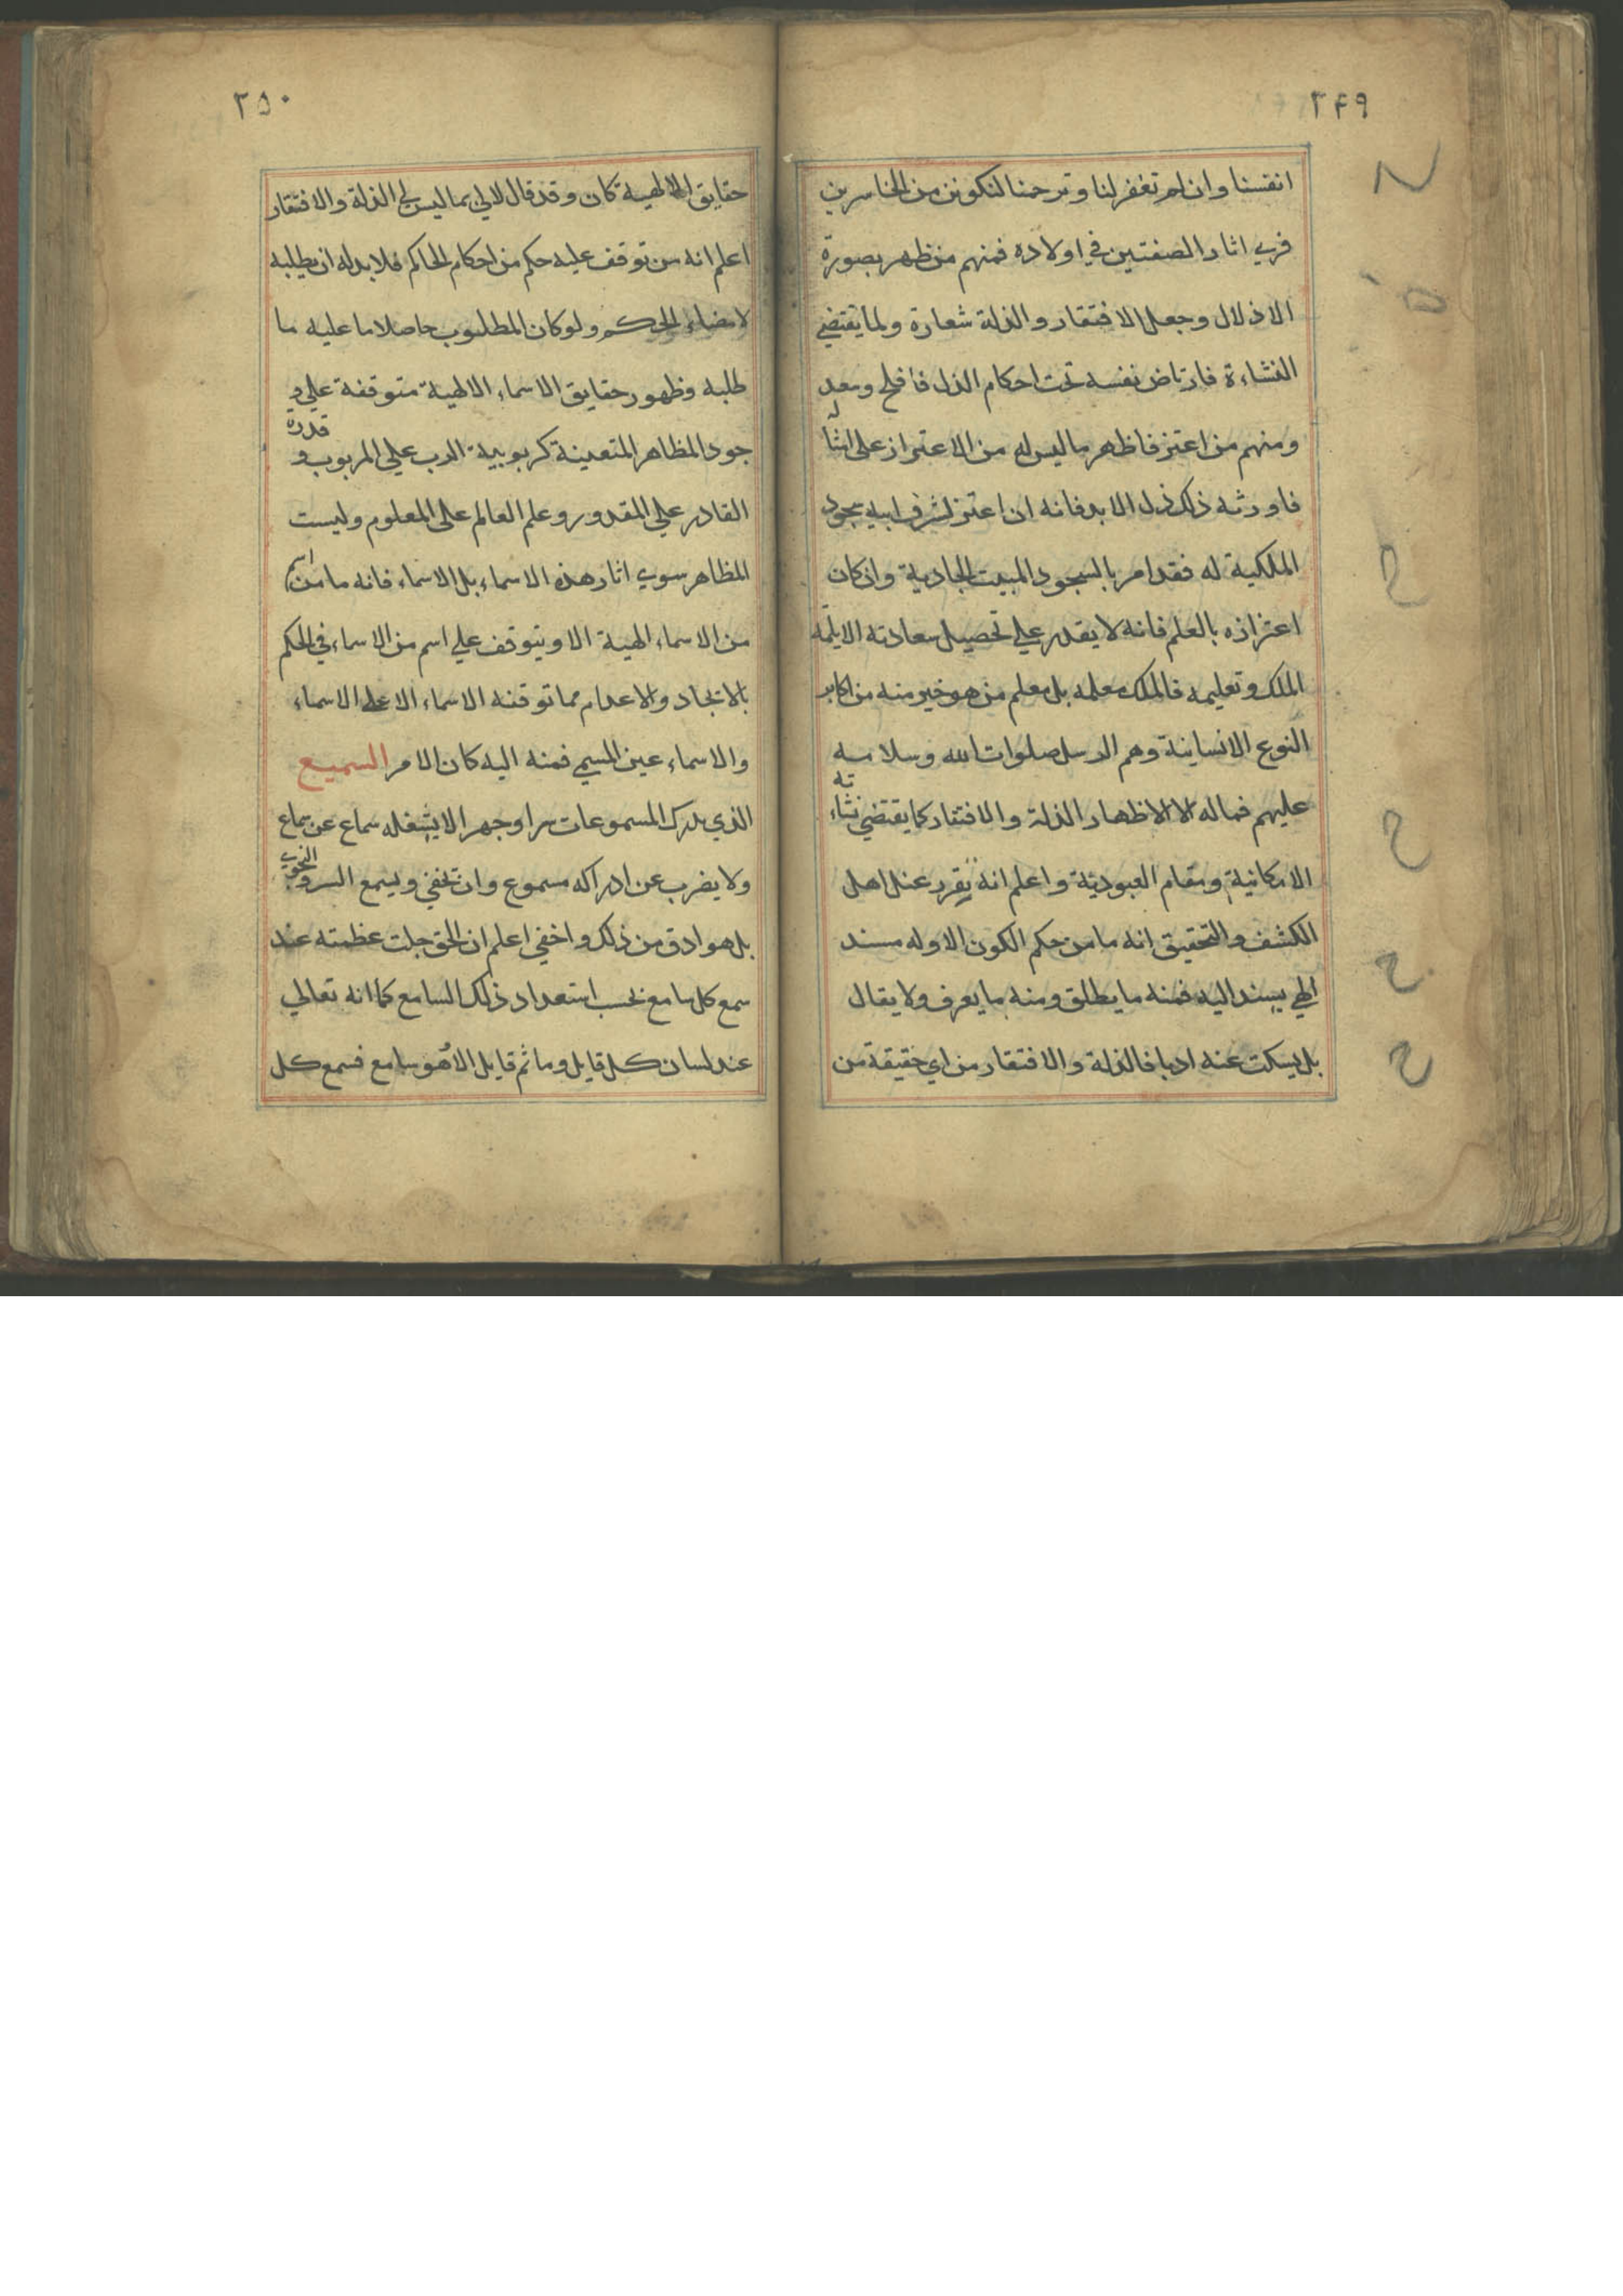 ۳۴۹
انفسنا وان لم تغفر لنا وترحمنا لنكونن من الخاسرين
فري اثار الصفتين في اولاده فمنهم من ظهر بصورة
الاذلال وجعل الافتقار والذلة شعارة ولما يقتضي
النشاءة فارتاض نفسه تحت احكام الذل فافلح وسعد
ومنهم من اعتز فاظهر ما ليس له من الاعتزاز على ابنا
فاورثه ذلك ذل الابد فانه ان اعتز لشرف ابيه بسجود
الملكية له فقد امر بالسجود المبيت الجادية وان كان
اعتزازه بالعلم فانه لا يقدر علي تحصيل سعادته الا بلمة
الملك وتعليمه فالملك معلمه بل معلم من هو خير منه من اكابر
النوع الانسانية وهم الرسل صلوات الله وسلامه
عليهم فما له الا الاظهار الذلة والافتقار كما يقتضي نشاءته
الامكانية ومقام العبودية واعلم انه تقرر عند اهل
الكشف والتحقيق انه ما من حكم الكون الا وله مسند
الهي يسند اليه فمنه ما يطلق ومنه ما يعرف ولا يقال
بل يسكت عنه ادبا فالذلة والافتقار من اي حقيقة من
۳۵۰
حقايق الالهية كان وقد قال لابي بما ليس لي الذلة والافتقار
اعلم انه من توقف عليه حكم من احكام الحاكم فلا بد له ان يطلبه
لامضاء الحكم ولو كان المطلوب حاصلا ما عليه ما
طلبه وظهور حقايق الاسماء الالهية متوقفة علي و
جود المظاهر المتعينة كربوبية الرب علي المربوب و قدرة
القادر علي المقدور وعلم العالم على المعلوم وليست
المظاهر سوي اثار هذه الاسماء بل الاسماء فانه ما من اسم
من الاسماء الهية الا ويتوقف علي اسم من الاسماء في الحكم
بالايجاد والاعدام مما توقنه الاسماء الا على الاسماء
والاسماء عين المسمي فمنه اليه كان الامر السميع
الذي يدرك المسموعات سرا وجهرا لا يشغله سماع عن سماع
ولا يضرب عن ادراكه مسموع وان تخفي ويسمع السر و النجوي
بل هو ادق من ذلك واخفي اعلم ان الحق جلت عظمته عند
سمع كل سامع بحسب استعداد ذلك السامع كما انه تعالي
عند لسان كل قايل وما ثم قايل الا هو سامع فسمع كل